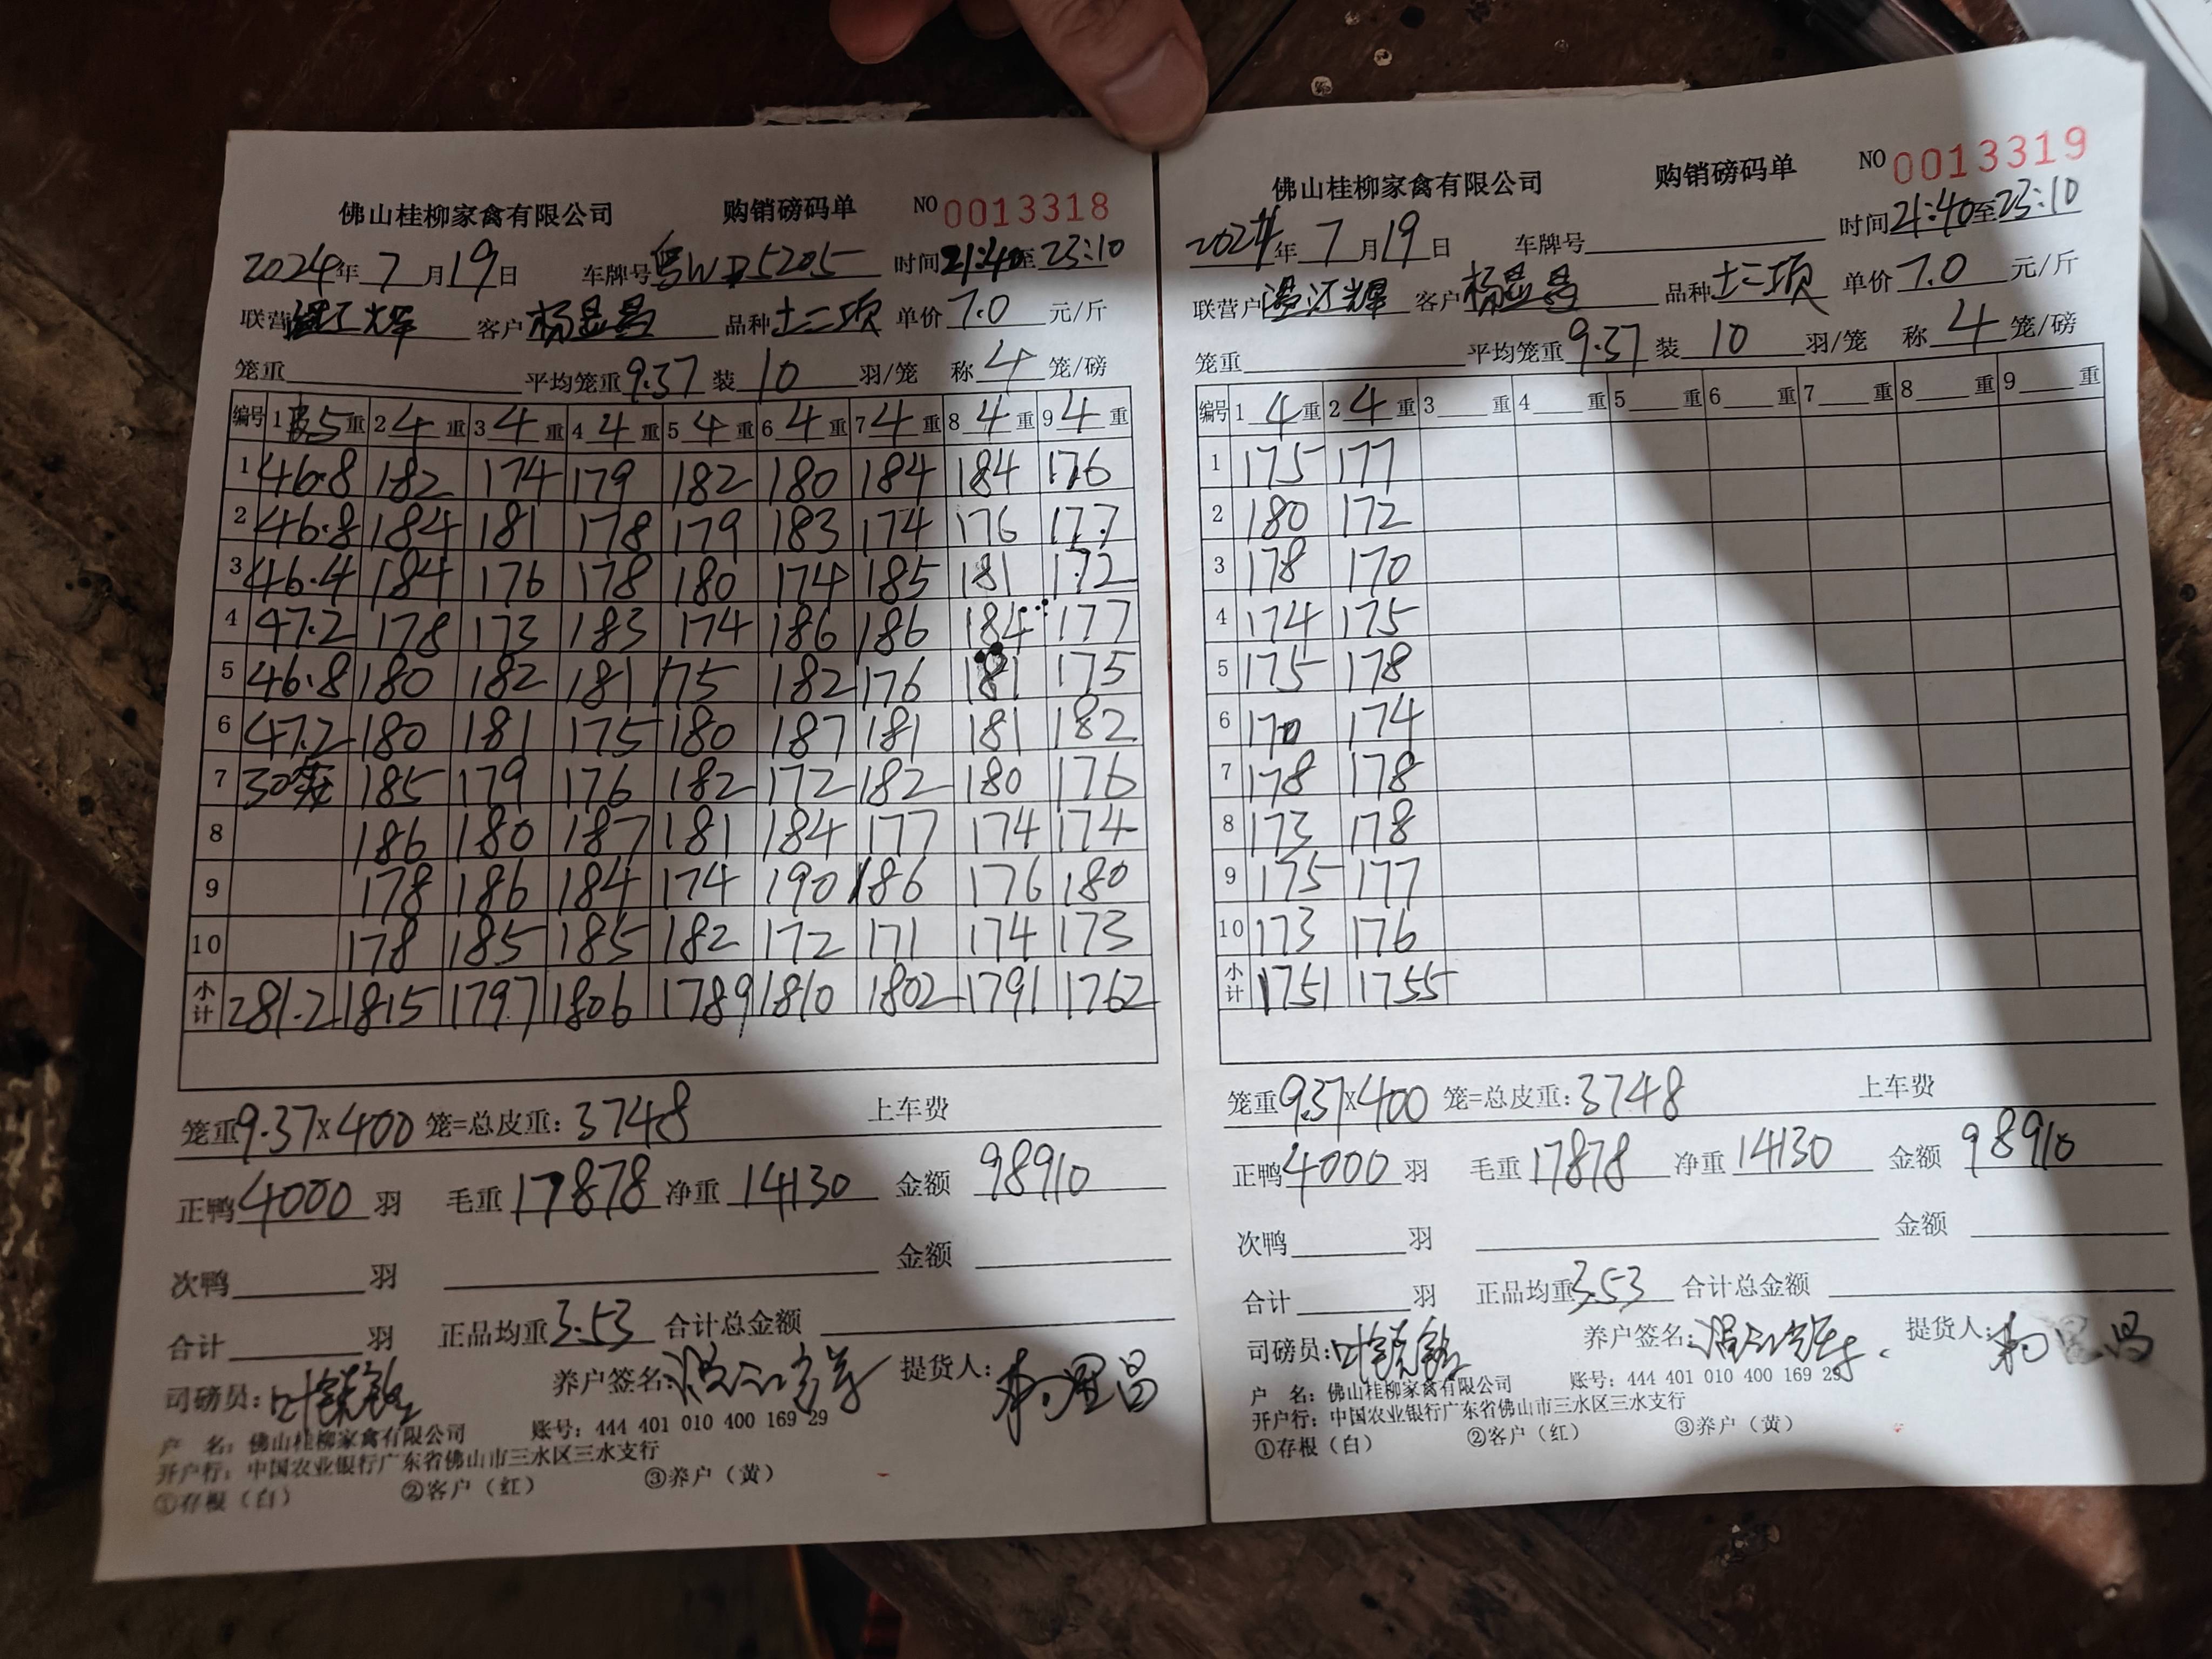 佛山桂柳家禽有限公司 购销磅码单 NO 0013318
2024年 7 月 19 日 车牌号 粤WD5205 时间 21:40 至 23:10
联营 客户 杨显昌 品种 土二项 单价 7.0 元/斤
笼重 平均笼重 9.37 装 10 羽/笼 称 4 笼/磅
编号 1 5 重 2 4 重 3 4 重 4 4 重 5 4 重 6 4 重 7 4 重 8 4 重 9 4 重
1 46.8 182 174 179 182 180 184 184 176
2 46.8 184 181 178 179 183 174 176 177
3 46.4 184 176 178 180 174 185 181 172
4 47.2 178 173 183 174 186 186 184 177
5 46.8 180 182 181 175 182 176 181 175
6 47.2 180 181 175 180 187 181 181 182
7 30 185 179 176 182 172 182 180 176
8 186 180 187 181 184 177 174 174
9 178 186 184 174 190 186 176 180
10 178 185 185 182 172 171 174 173
小计 281.2 1815 1797 1806 1789 1810 1802 1791 1762
笼重 9.37 X 400 笼=总皮重: 3748 上车费
正鸭 4000 羽 毛重 17878 净重 14130 金额 98910
次鸭 羽 金额
合计 羽 正品均重 3.53 合计总金额
司磅员: 养户签名: 提货人:
户 名: 佛山桂柳家禽有限公司 账号: 444 401 010 400 169 29
开户行: 中国农业银行广东省佛山市三水区三水支行
①存根（白） ②客户（红） ③养户（黄）
佛山桂柳家禽有限公司 购销磅码单 NO 0013319
2024年 7 月 19 日 车牌号 时间 21:40 至 23:10
联营户 温江辉 客户 杨显昌 品种 土二项 单价 7.0 元/斤
笼重 平均笼重 9.37 装 10 羽/笼 称 4 笼/磅
编号 1 4 重 2 4 重 3 重 4 重 5 重 6 重 7 重 8 重 9 重
1 175 177
2 180 172
3 178 170
4 174 175
5 175 178
6 170 174
7 178 178
8 173 178
9 175 177
10 173 176
小计 1751 1755
笼重 9.37 X 400 笼=总皮重: 3748 上车费
正鸭 4000 羽 毛重 17878 净重 14130 金额 98910
次鸭 羽 金额
合计 羽 正品均重 3.53 合计总金额
司磅员: 养户签名: 提货人:
户 名: 佛山桂柳家禽有限公司 账号: 444 401 010 400 169 29
开户行: 中国农业银行广东省佛山市三水区三水支行
①存根（白） ②客户（红） ③养户（黄）